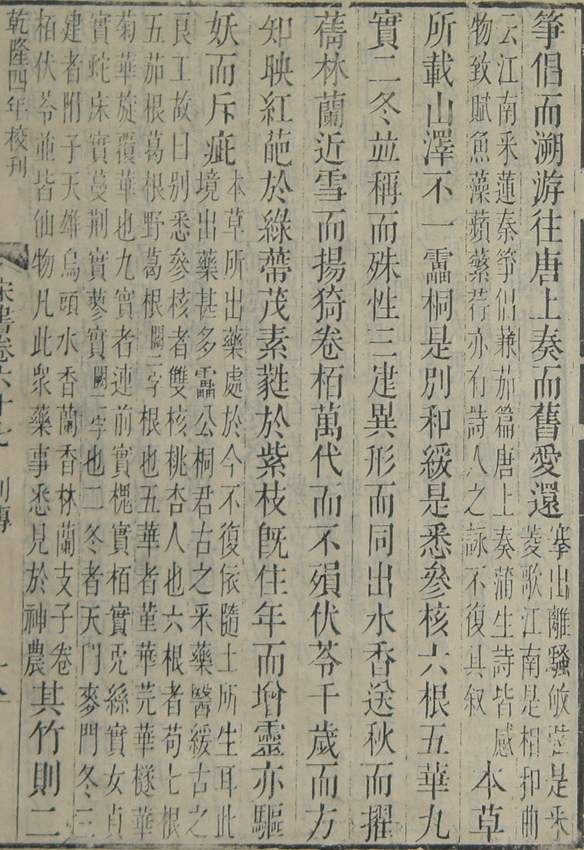 箏倡而溯游往唐上奏而舊愛還
搴出離騷敂弦是采
菱歌江南是相和曲
云江南采蓮秦箏倡兼茄篇唐上奏蒲生詩皆感
物致賦魚藻蘋蘩荇亦有詩人之詠不復具敘
本草
所載山澤不一靁桐是別和緩是悉參核六根五華九
實二冬並稱而殊性三建異形而同出水香送秋而擢
蒨林蘭近雪而揚猗卷栢萬代而不殞伏苓千歲而方
知映紅葩於綠蔕茂素蕤於紫枝旣住年而增靈亦驅
妖而斥疵
本草所出藥處於今不復依隨土所生耳此
境出藥甚多靁公桐君古之采藥醫緩古之
良工故曰別悉參核者雙核桃杏人也六根者苟七根
五茄根葛根野葛根闕二字根也五華者堇華芫華檖華
菊華旋覆華也九實者連前實槐實栢實兎絲實女貞
實蛇床實蔓荆實蓼實闕二字也二冬者天門麥門冬三
建者附子天雄烏頭水香蘭香林蘭支子卷
栢伏苓並皆仙物凡此衆藥事悉見於神農
其竹則二
乾隆四年校刊
宋書卷六十七
列傳